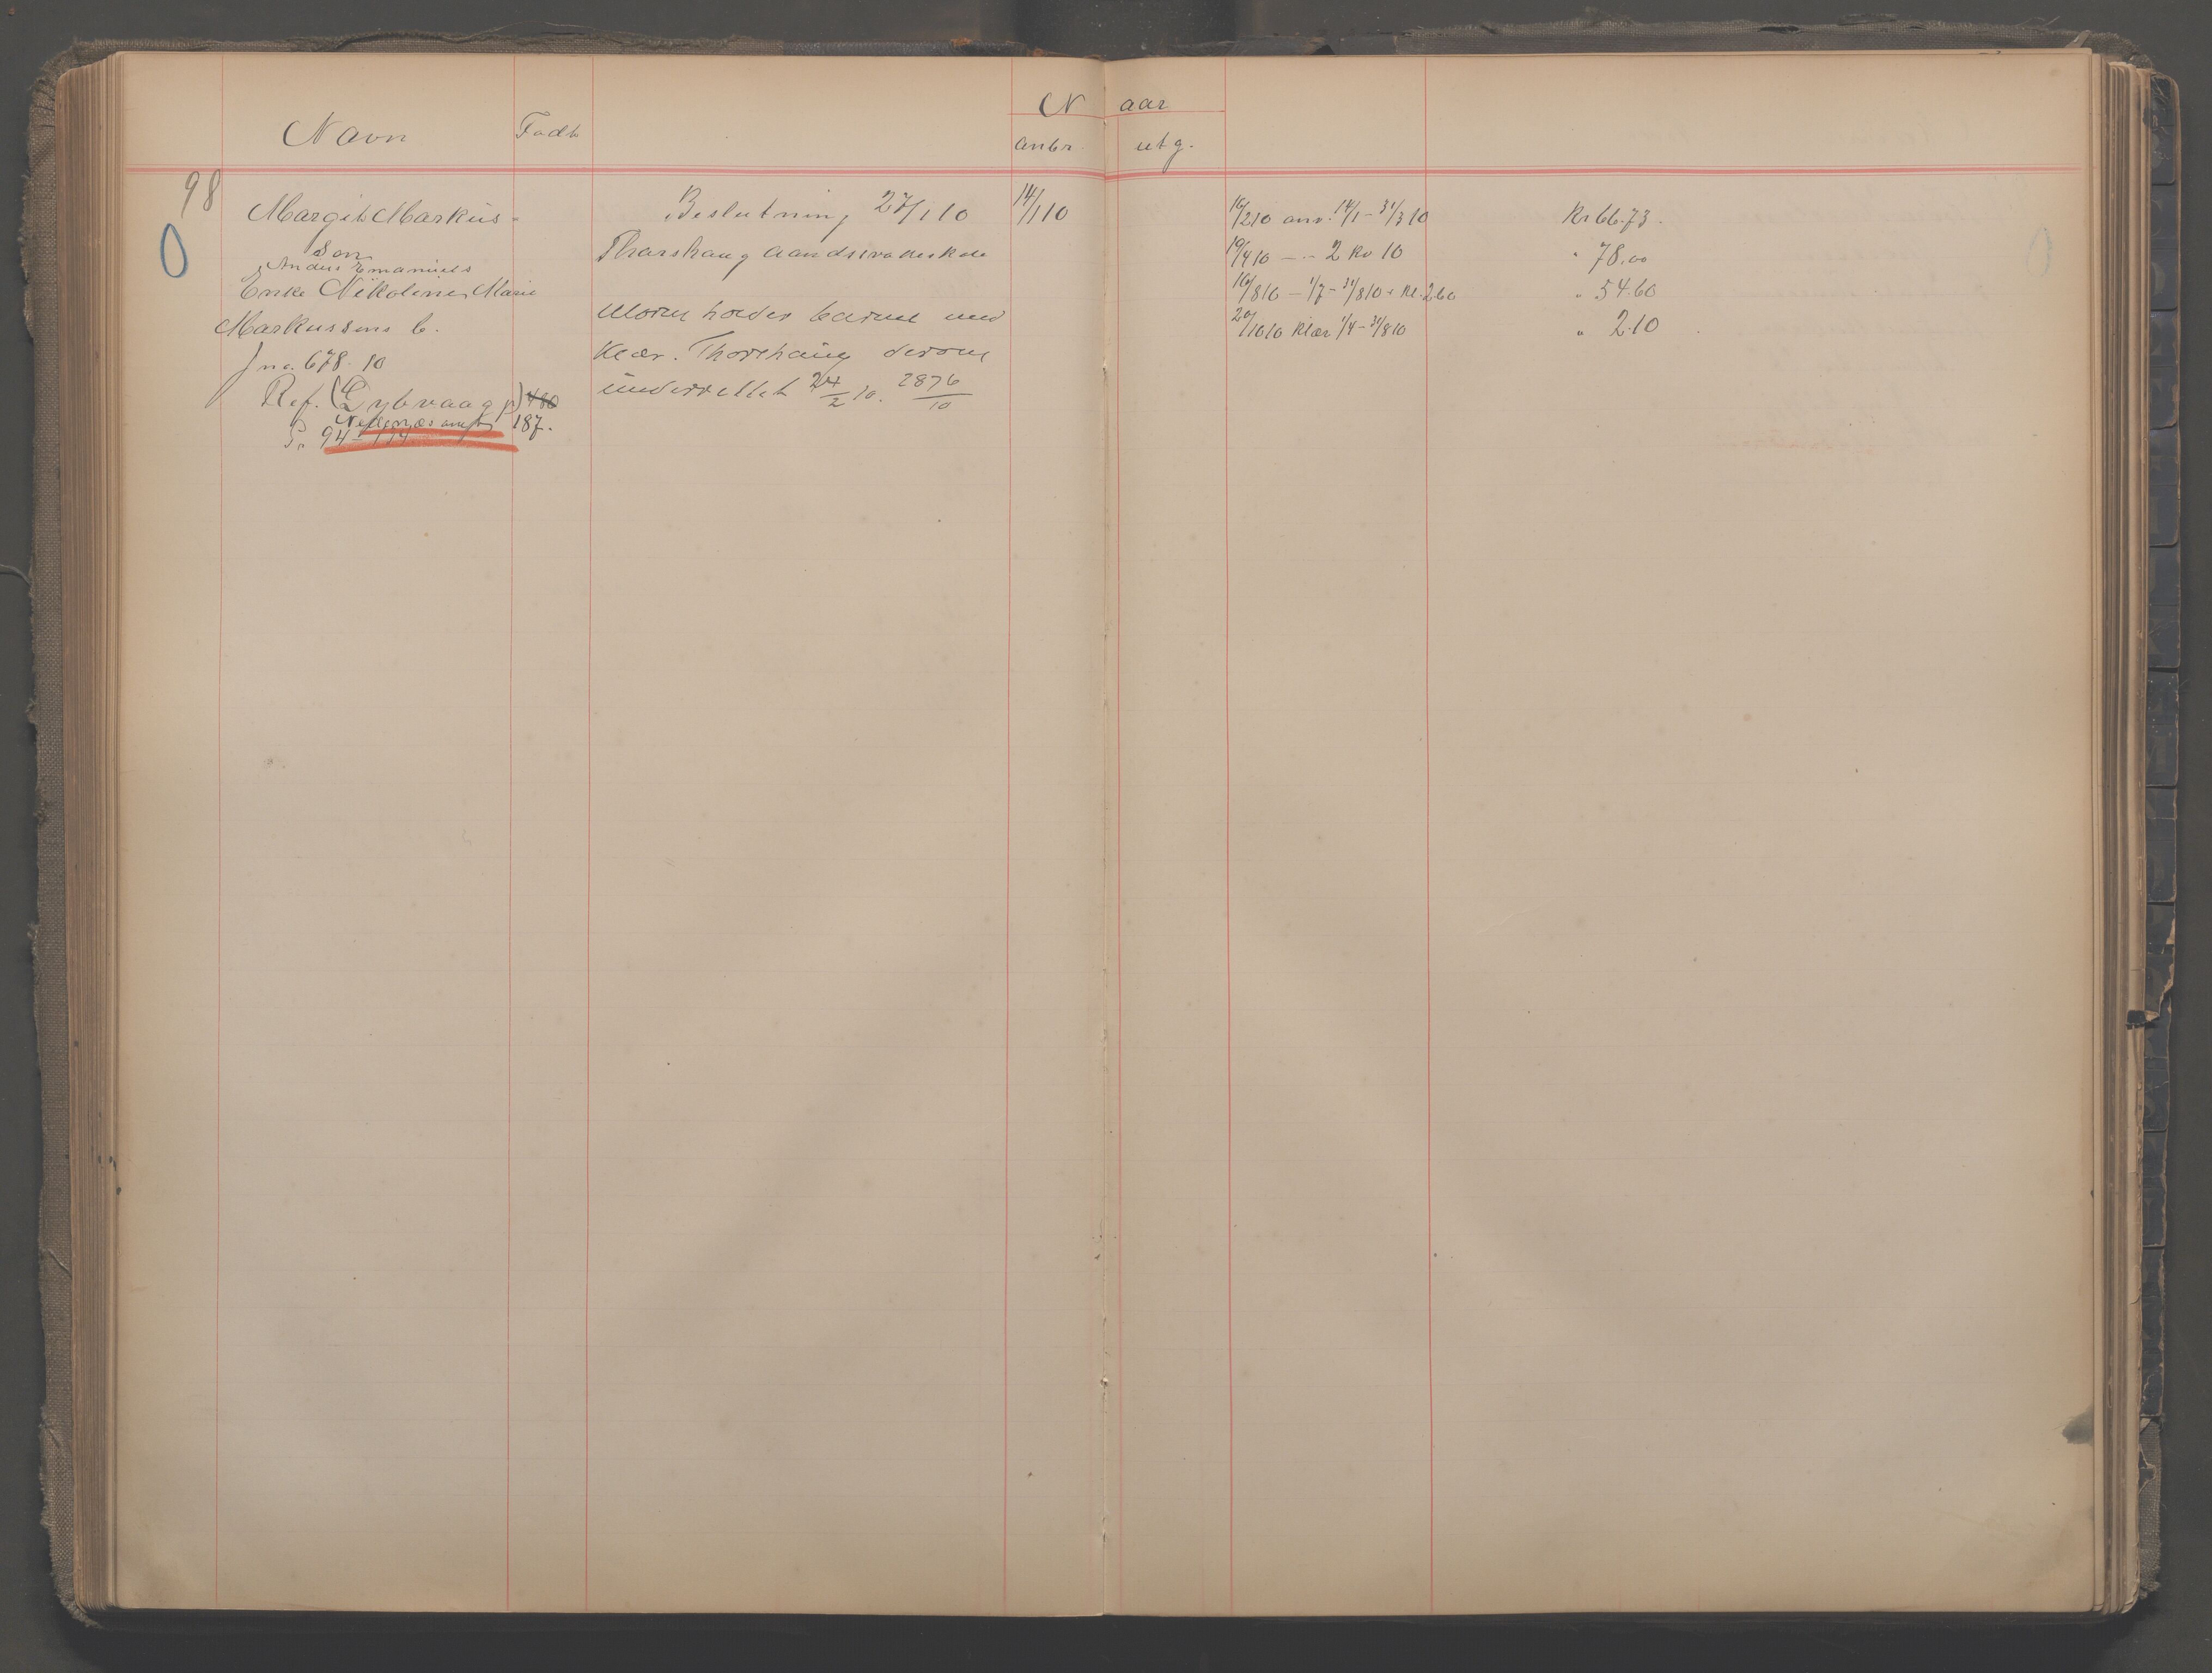 Navn
Födt
N aar
anbr.
utg.
98
0
Margit Markus-
son
Anders Emanuels
Enke Nikoline Marie
Markussens b.
Jno. 678-10
Ref. (Dybvaag p) 480
Nedenæs amt) 187.
P. 94-114
Beslutning 27/1 10
Thorshaug aandssvakeskole
Moren holder barnet med
klær. Thorshaug derom
underrettet 24/2 10. 2876/10
14/1 10
16/2 10 anv. 14/1 - 31/3 10 Kr 66.73.
19/4 10 — - 2 kv 10 " 78.00
16/8 10 — 1/7 - 31/8 10 + kl. 2.60 " 54.60
20/10 10 klær 1/4 - 31/8 10 " 2.10